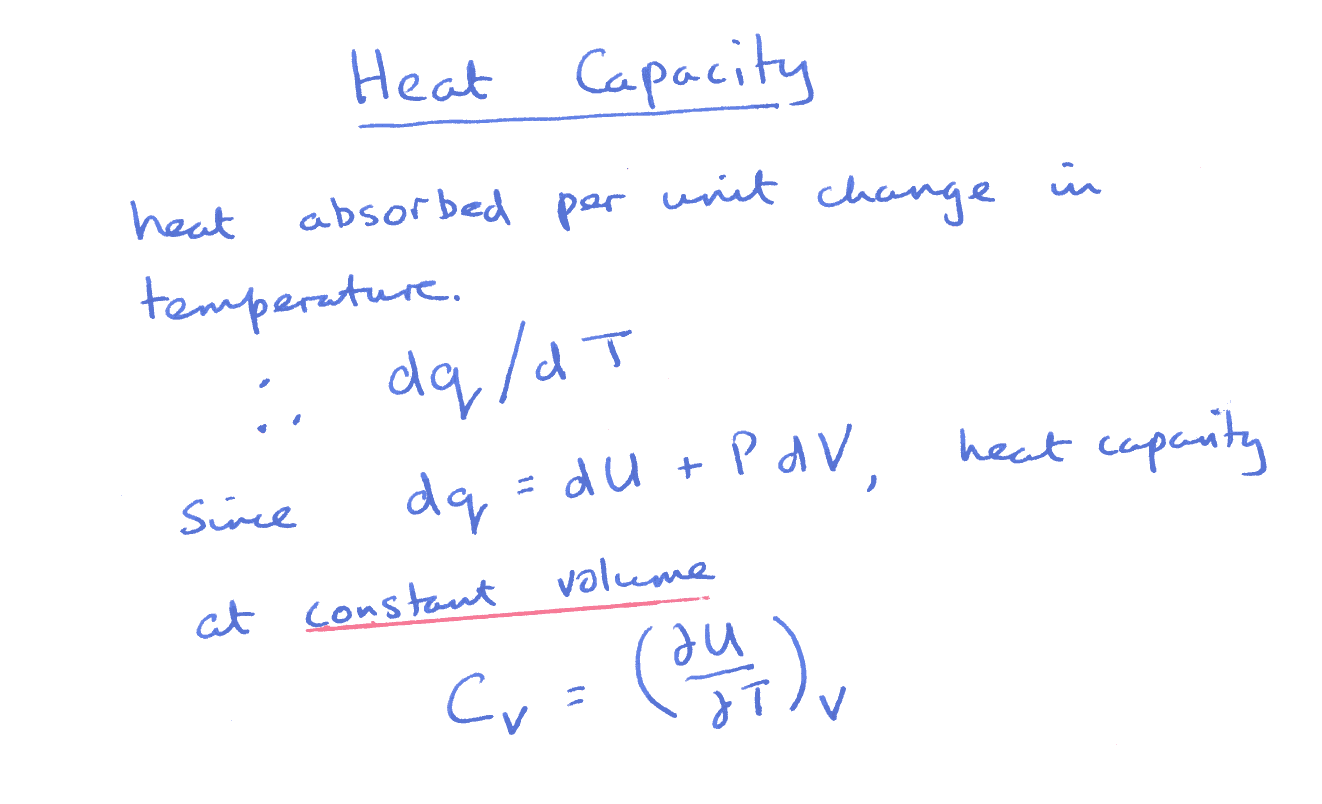 Heat Capacity
heat absorbed per unit change in
temperature.
∴ dq/dT
Since dq = dU + PdV, heat capacity
at constant volume
C_V = (∂U/∂T)_V